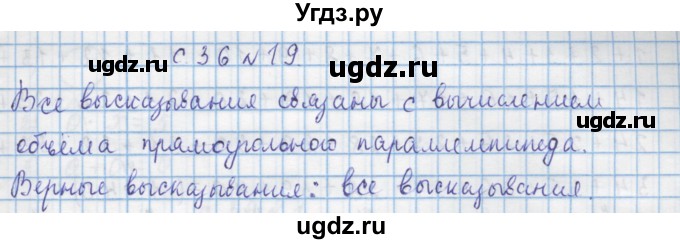 Угдз.ру
с 36 № 19
ugdz.ru ugdz.ru ugdz.ru
Все высказывания связаны с вычислением
ugdz.ru
объёма прямоугольного параллелепипеда.
Верные высказывания: все высказывания.
ugdz.ru ugdz.ru